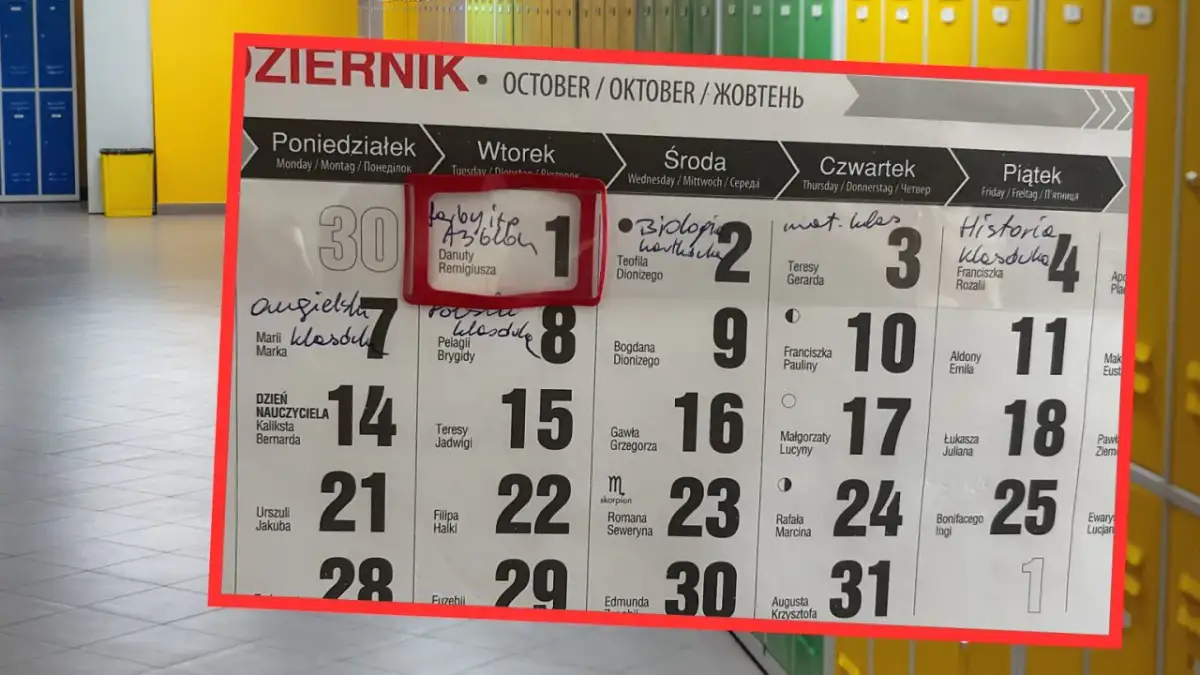 DZIERNIK • OCTOBER / OKTOBER / ЖОВТЕНЬ
Poniedziałek Wtorek Środa Czwartek Piątek
Monday / Montag / Понеділок Tuesday / Wednesday / Mittwoch / Середа Thursday / Donnerstag / Четвер Friday / Freitag / П'ятниця
30 Danuty Remigiusza 1 Biologia kartkówka Teofila Dionizego 2 mat. klas Teresy Gerarda 3 Historia klasówka Franciszka Rozalii 4
angielski klasówka Marii Marka 7 klasówka Pelagii Brygidy 8 Bogdana Dionizego 9 Franciszka Pauliny 10 Aldony Emila 11
DZIEŃ NAUCZYCIELA Kaliksta Bernarda 14 Teresy Jadwigi 15 Gawła Grzegorza 16 Małgorzaty Lucyny 17 Łukasza Juliana 18
Urszuli Jakuba 21 Filipa Halki 22 skorpion Romana Seweryna 23 Rafała Marcina 24 Bonifacego Ingi 25
28 Euzebii 29 Edmunda 30 Augusta Krzysztofa 31 1